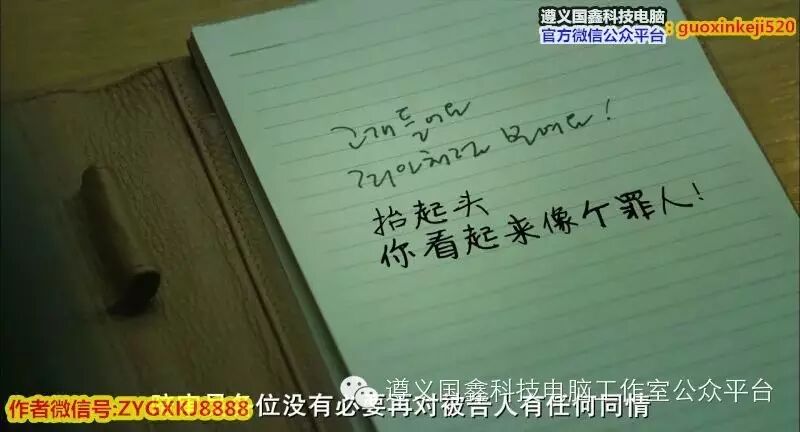 遵义国鑫科技电脑
官方微信公众平台
:guoxinkeji520
고개 들어요
죄인처럼 보여요!
抬起头
你看起来像个罪人!
遵义国鑫科技电脑工作室公众平台
作者微信号:ZYGXKJ8888
各位没有必要再对被告人有任何同情